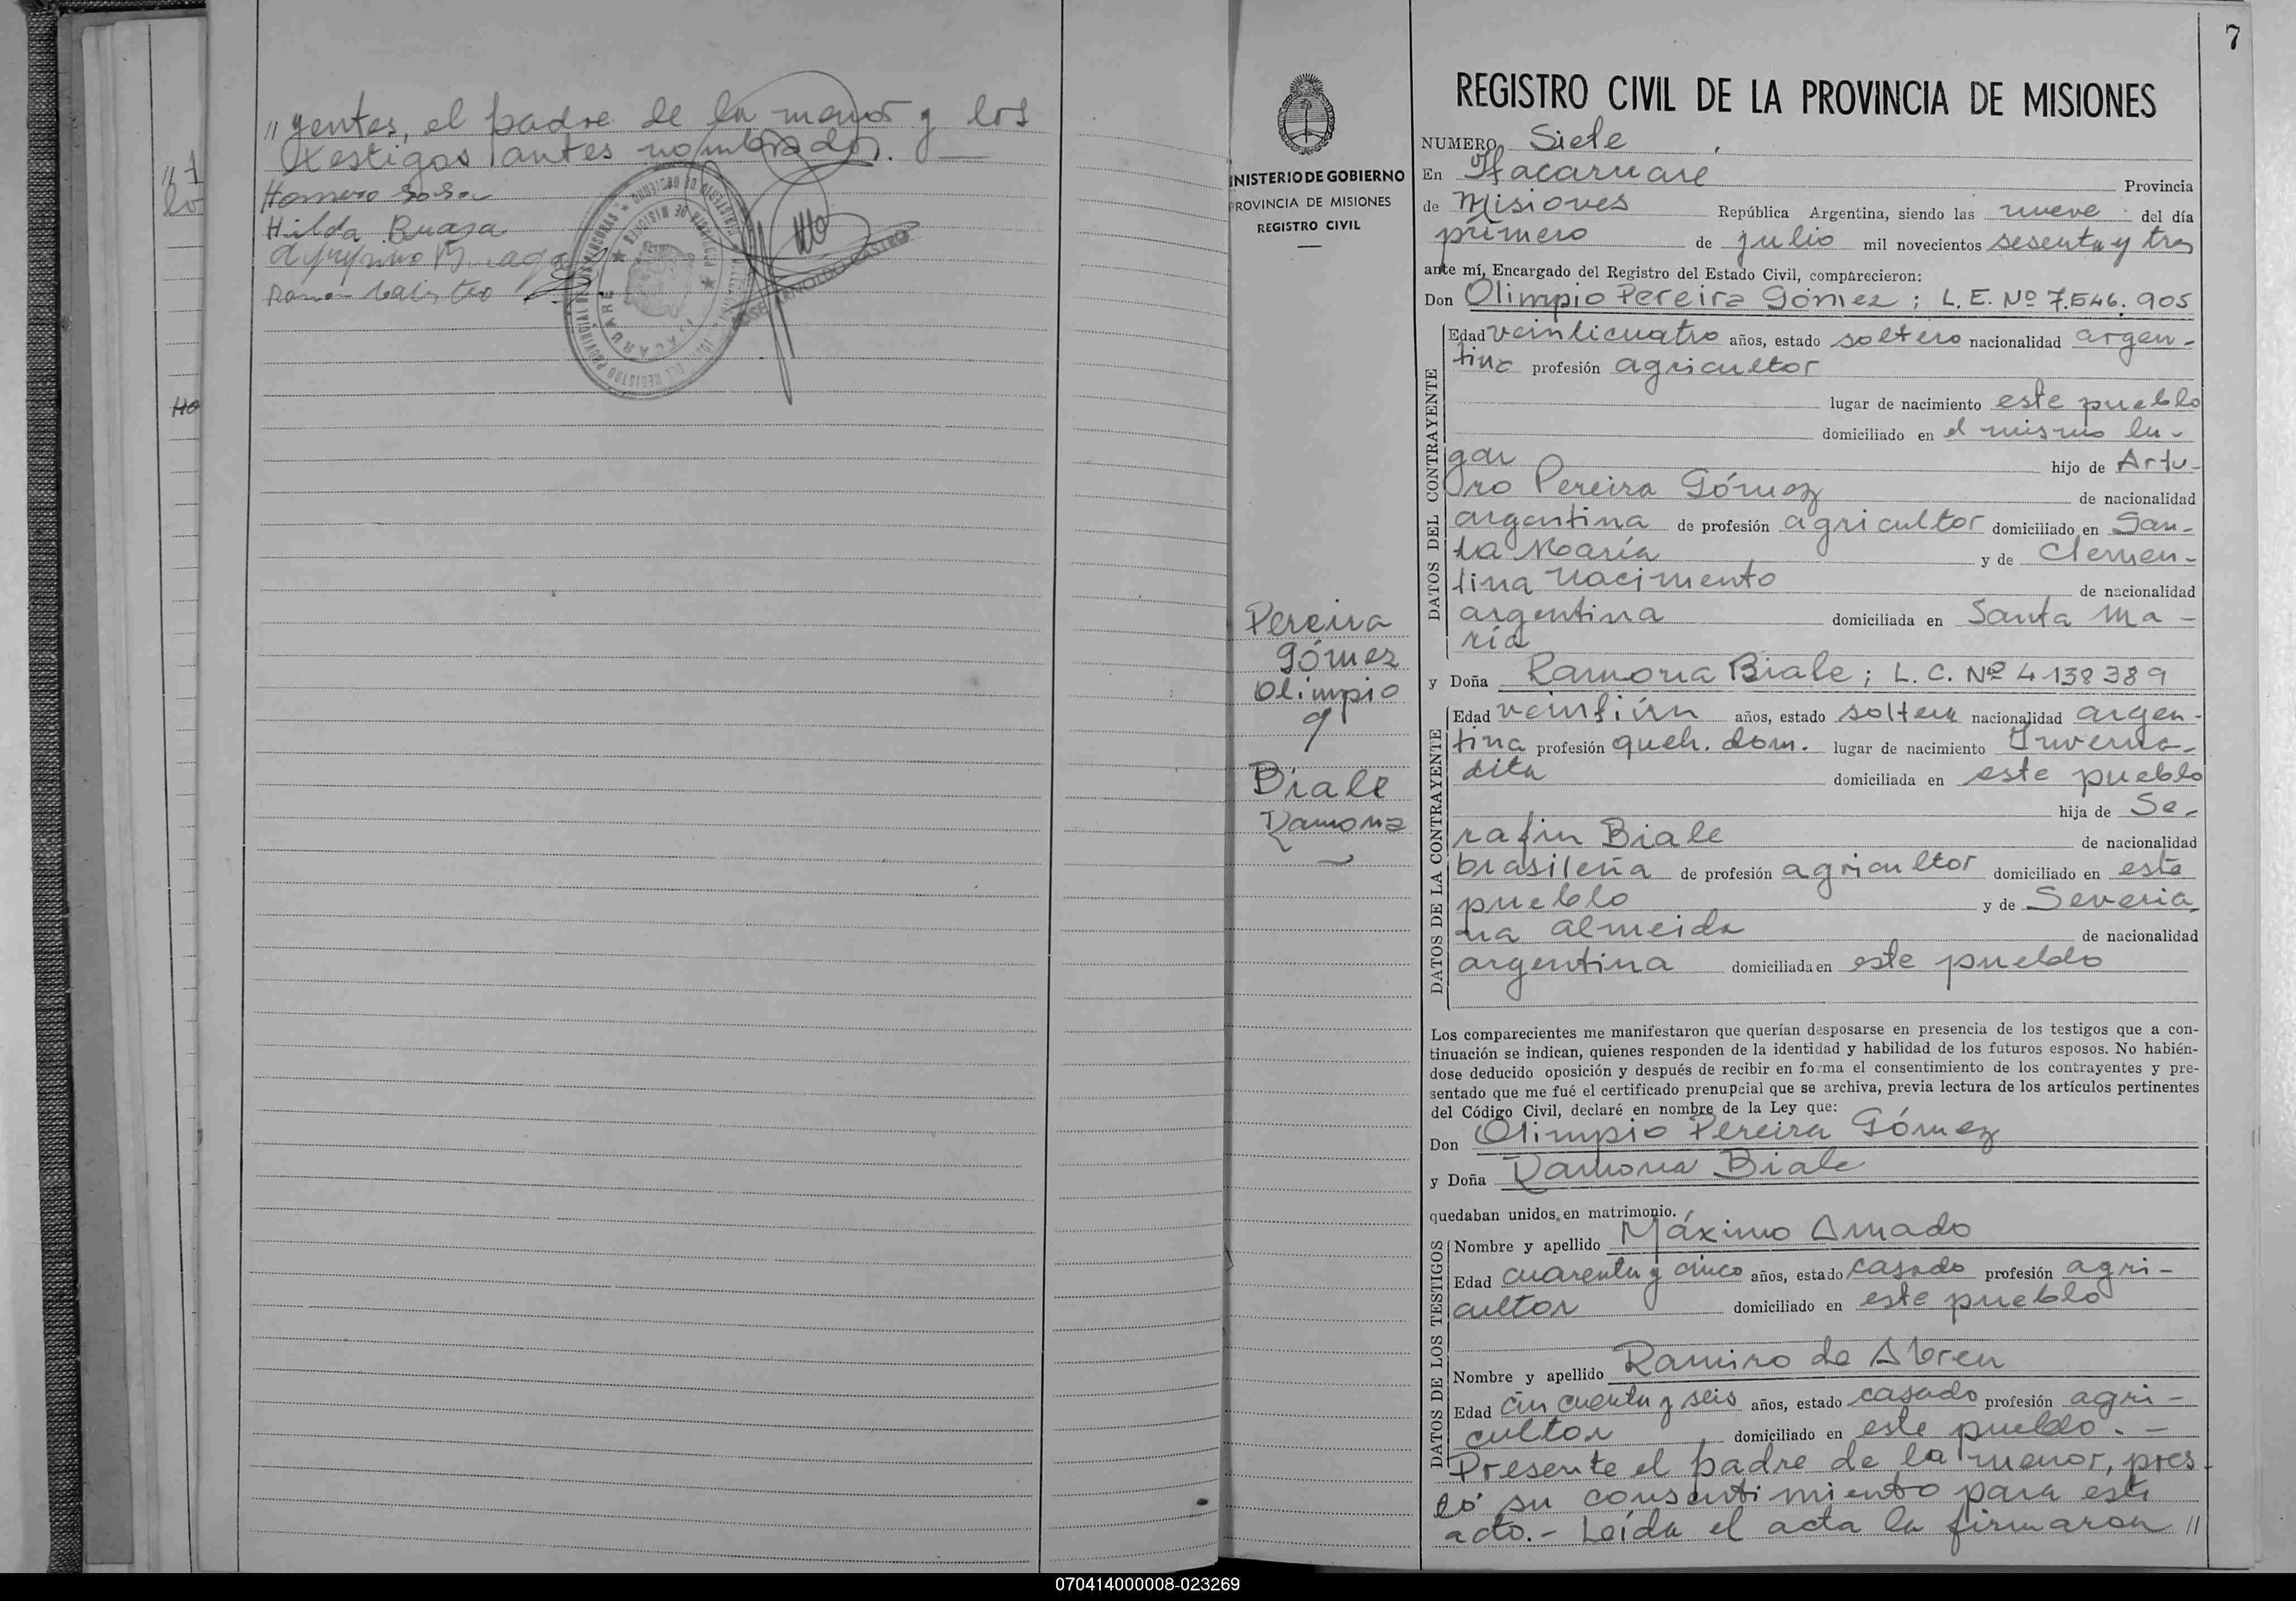 " yentes, el padre de la menor y los
testigos antes nombrados. —
Homero Sosa
Hilda Braga
Braga
Ramon
7
REGISTRO CIVIL DE LA PROVINCIA DE MISIONES
MINISTERIO DE GOBIERNO
PROVINCIA DE MISIONES
REGISTRO CIVIL
Pereira
Gómez
Olimpio
y
Biale
Ramona
NUMERO Siete
En Itacaruaré Provincia
de Misiones República Argentina, siendo las nueve del día
primero de julio mil novecientos sesenta y tres
ante mí, Encargado del Registro del Estado Civil, comparecieron:
Don Olimpio Pereira Gómez ; L. E. Nº 7.546.905
DATOS DEL CONTRAYENTE
Edad veinticuatro años, estado soltero nacionalidad argen-
tina profesión agricultor
lugar de nacimiento este pueblo
domiciliado en el mismo lu-
gar hijo de Artu-
ro Pereira Gómez de nacionalidad
argentina de profesión agricultor domiciliado en San-
ta María y de Clemen-
tina Nacimento de nacionalidad
argentina domiciliada en Santa Ma-
ría
y Doña Ramona Biale ; L. C. Nº 4.138389
DATOS DE LA CONTRAYENTE
Edad veintiún años, estado soltera nacionalidad argen-
tina profesión queh. dom. lugar de nacimiento Inverna-
dita domiciliada en este pueblo
hija de Se-
rafin Biale de nacionalidad
brasileña de profesión agricultor domiciliado en este
pueblo y de Severia-
na Almeida de nacionalidad
argentina domiciliada en este pueblo
Los comparecientes me manifestaron que querían desposarse en presencia de los testigos que a con-
tinuación se indican, quienes responden de la identidad y habilidad de los futuros esposos. No habién-
dose deducido oposición y después de recibir en forma el consentimiento de los contrayentes y pre-
sentado que me fué el certificado prenupcial que se archiva, previa lectura de los artículos pertinentes
del Código Civil, declaré en nombre de la Ley que:
Don Olimpio Pereira Gómez
y Doña Ramona Biale
quedaban unidos en matrimonio.
DATOS DE LOS TESTIGOS
Nombre y apellido Máximo Amado
Edad cuarenta y cinco años, estado casado profesión agri-
cultor domiciliado en este pueblo
Nombre y apellido Ramiro de Abreu
Edad cincuenta y seis años, estado casado profesión agri-
cultor domiciliado en este pueblo. -
Presente el padre de la menor, pres-
tó su consentimiento para este
acto. - Leída el acta la firmaron "
070414000008-023269